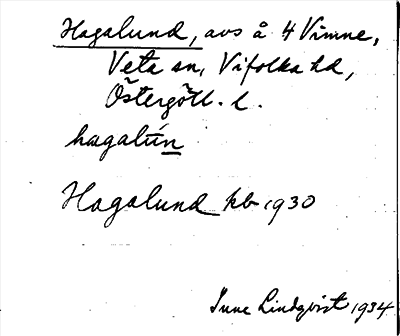 Hagalund, avs å 4 Vimne,
Veta sn, Vifolka hd,
Östergötl. l.
hagalún
Hagalund kb 1930
Sune Lindqvist 1934